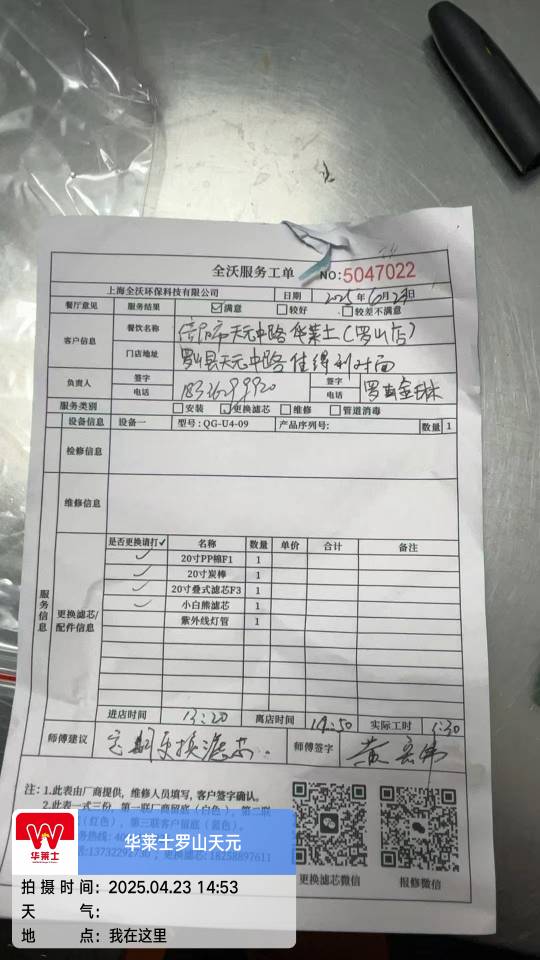 全沃服务工单 NO:5047022
上海全沃环保科技有限公司 日期 2025年 月23日
餐厅意见 服务结果 ☑满意 □较好 □较差不满意
客户信息 餐饮名称 信阳市天元中路华莱士(罗山店)
门店地址 罗山县天元中路佳得利对面
负责人 签字 签字
电话 电话
服务类别 □安装 ☑更换滤芯 □维修 □管道消毒
设备信息 设备一 型号:QG-U4-09 产品序列号: 数量 1
检修信息
维修信息
服务信息
更换滤芯/配件信息
是否更换请打✓ 名称 数量 单价 合计 备注
✓ 20寸PP棉F1 1
✓ 20寸炭棒 1
✓ 20寸叠式滤芯F3 1
✓ 小白熊滤芯 1
紫外线灯管 1
进店时间 13:20 离店时间 14:50 实际工时 1:30
师傅建议 定期更换滤芯. 师傅签字 黄宏伟
注:1.此表由厂商提供,维修人员填写,客户签字确认。
2.此表一式三份,第一联厂商留底(白色),第二联
(红色),第三联客户留底(蓝色)。
务热线:40
:13732292730 ,更换滤芯:18258897611
更换滤芯微信 报修微信
华莱士
华莱士罗山天元
拍摄时间:2025.04.23 14:53
天气:
地点:我在这里